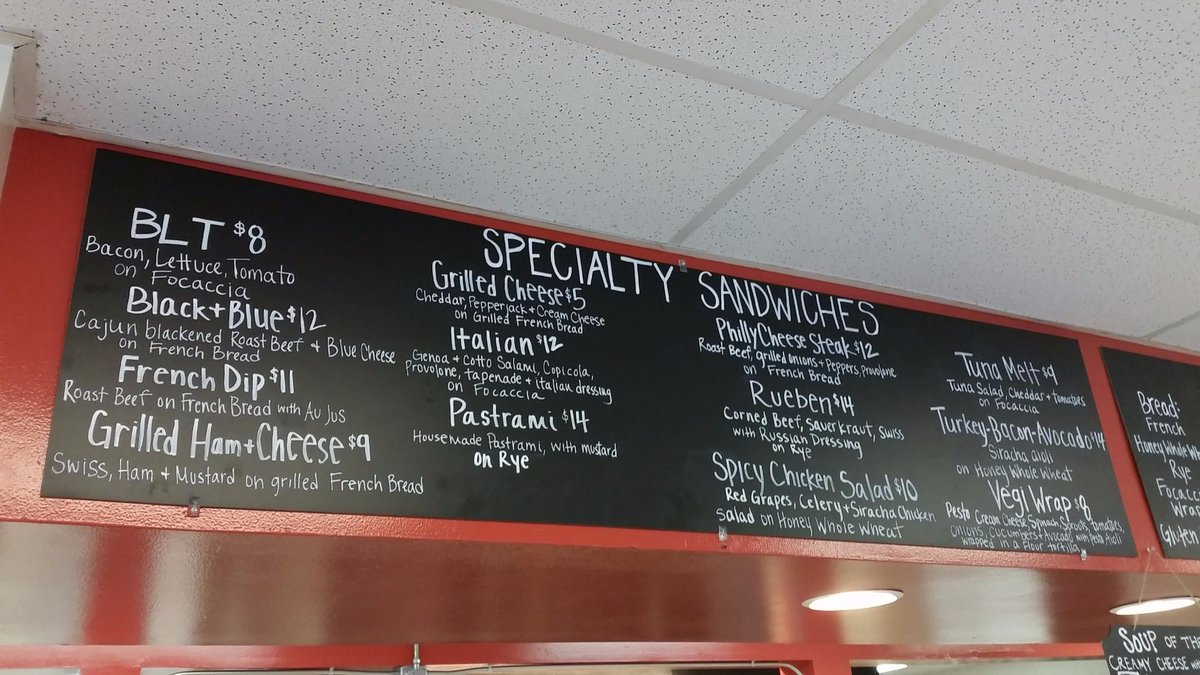 SPECIALTY SANDWICHES
BLT $8
Bacon, Lettuce, Tomato
on Focaccia
Black + Blue $12
Cajun blackened Roast Beef + Blue Cheese
on French Bread
French Dip $11
Roast Beef on French Bread with Au Jus
Grilled Ham + Cheese $9
Swiss, Ham + Mustard on grilled French Bread
Grilled Cheese $5
Cheddar, Pepperjack + Cream Cheese
on Grilled French Bread
Italian $12
Genoa + Cotto Salami, Copicola,
Provolone, tapenade + italian dressing
on Focaccia
Pastrami $14
Housemade Pastrami, with mustard
on Rye
Philly Cheese Steak $12
Roast Beef, grilled onions + Peppers, provolone
on French Bread
Rueben $14
Corned Beef, Sauerkraut, Swiss
with Russian Dressing
on Rye
Spicy Chicken Salad $10
Red Grapes, Celery + Siracha Chicken
Salad on Honey Whole Wheat
Tuna Melt $9
Tuna Salad, Cheddar + tomatoes
on Focaccia
Turkey-Bacon-Avocado $14
Siracha aioli
on Honey Whole Wheat
Vegi Wrap $8
Pesto Cream Cheese, Spinach, Sprouts, tomatoes,
onions, cucumbers + Avocado with Pesto Aioli
wrapped in a flour tortilla
Bread:
French
Honey Whole
Rye
Gluten
SOUP OF THE
CREAMY CHEESE